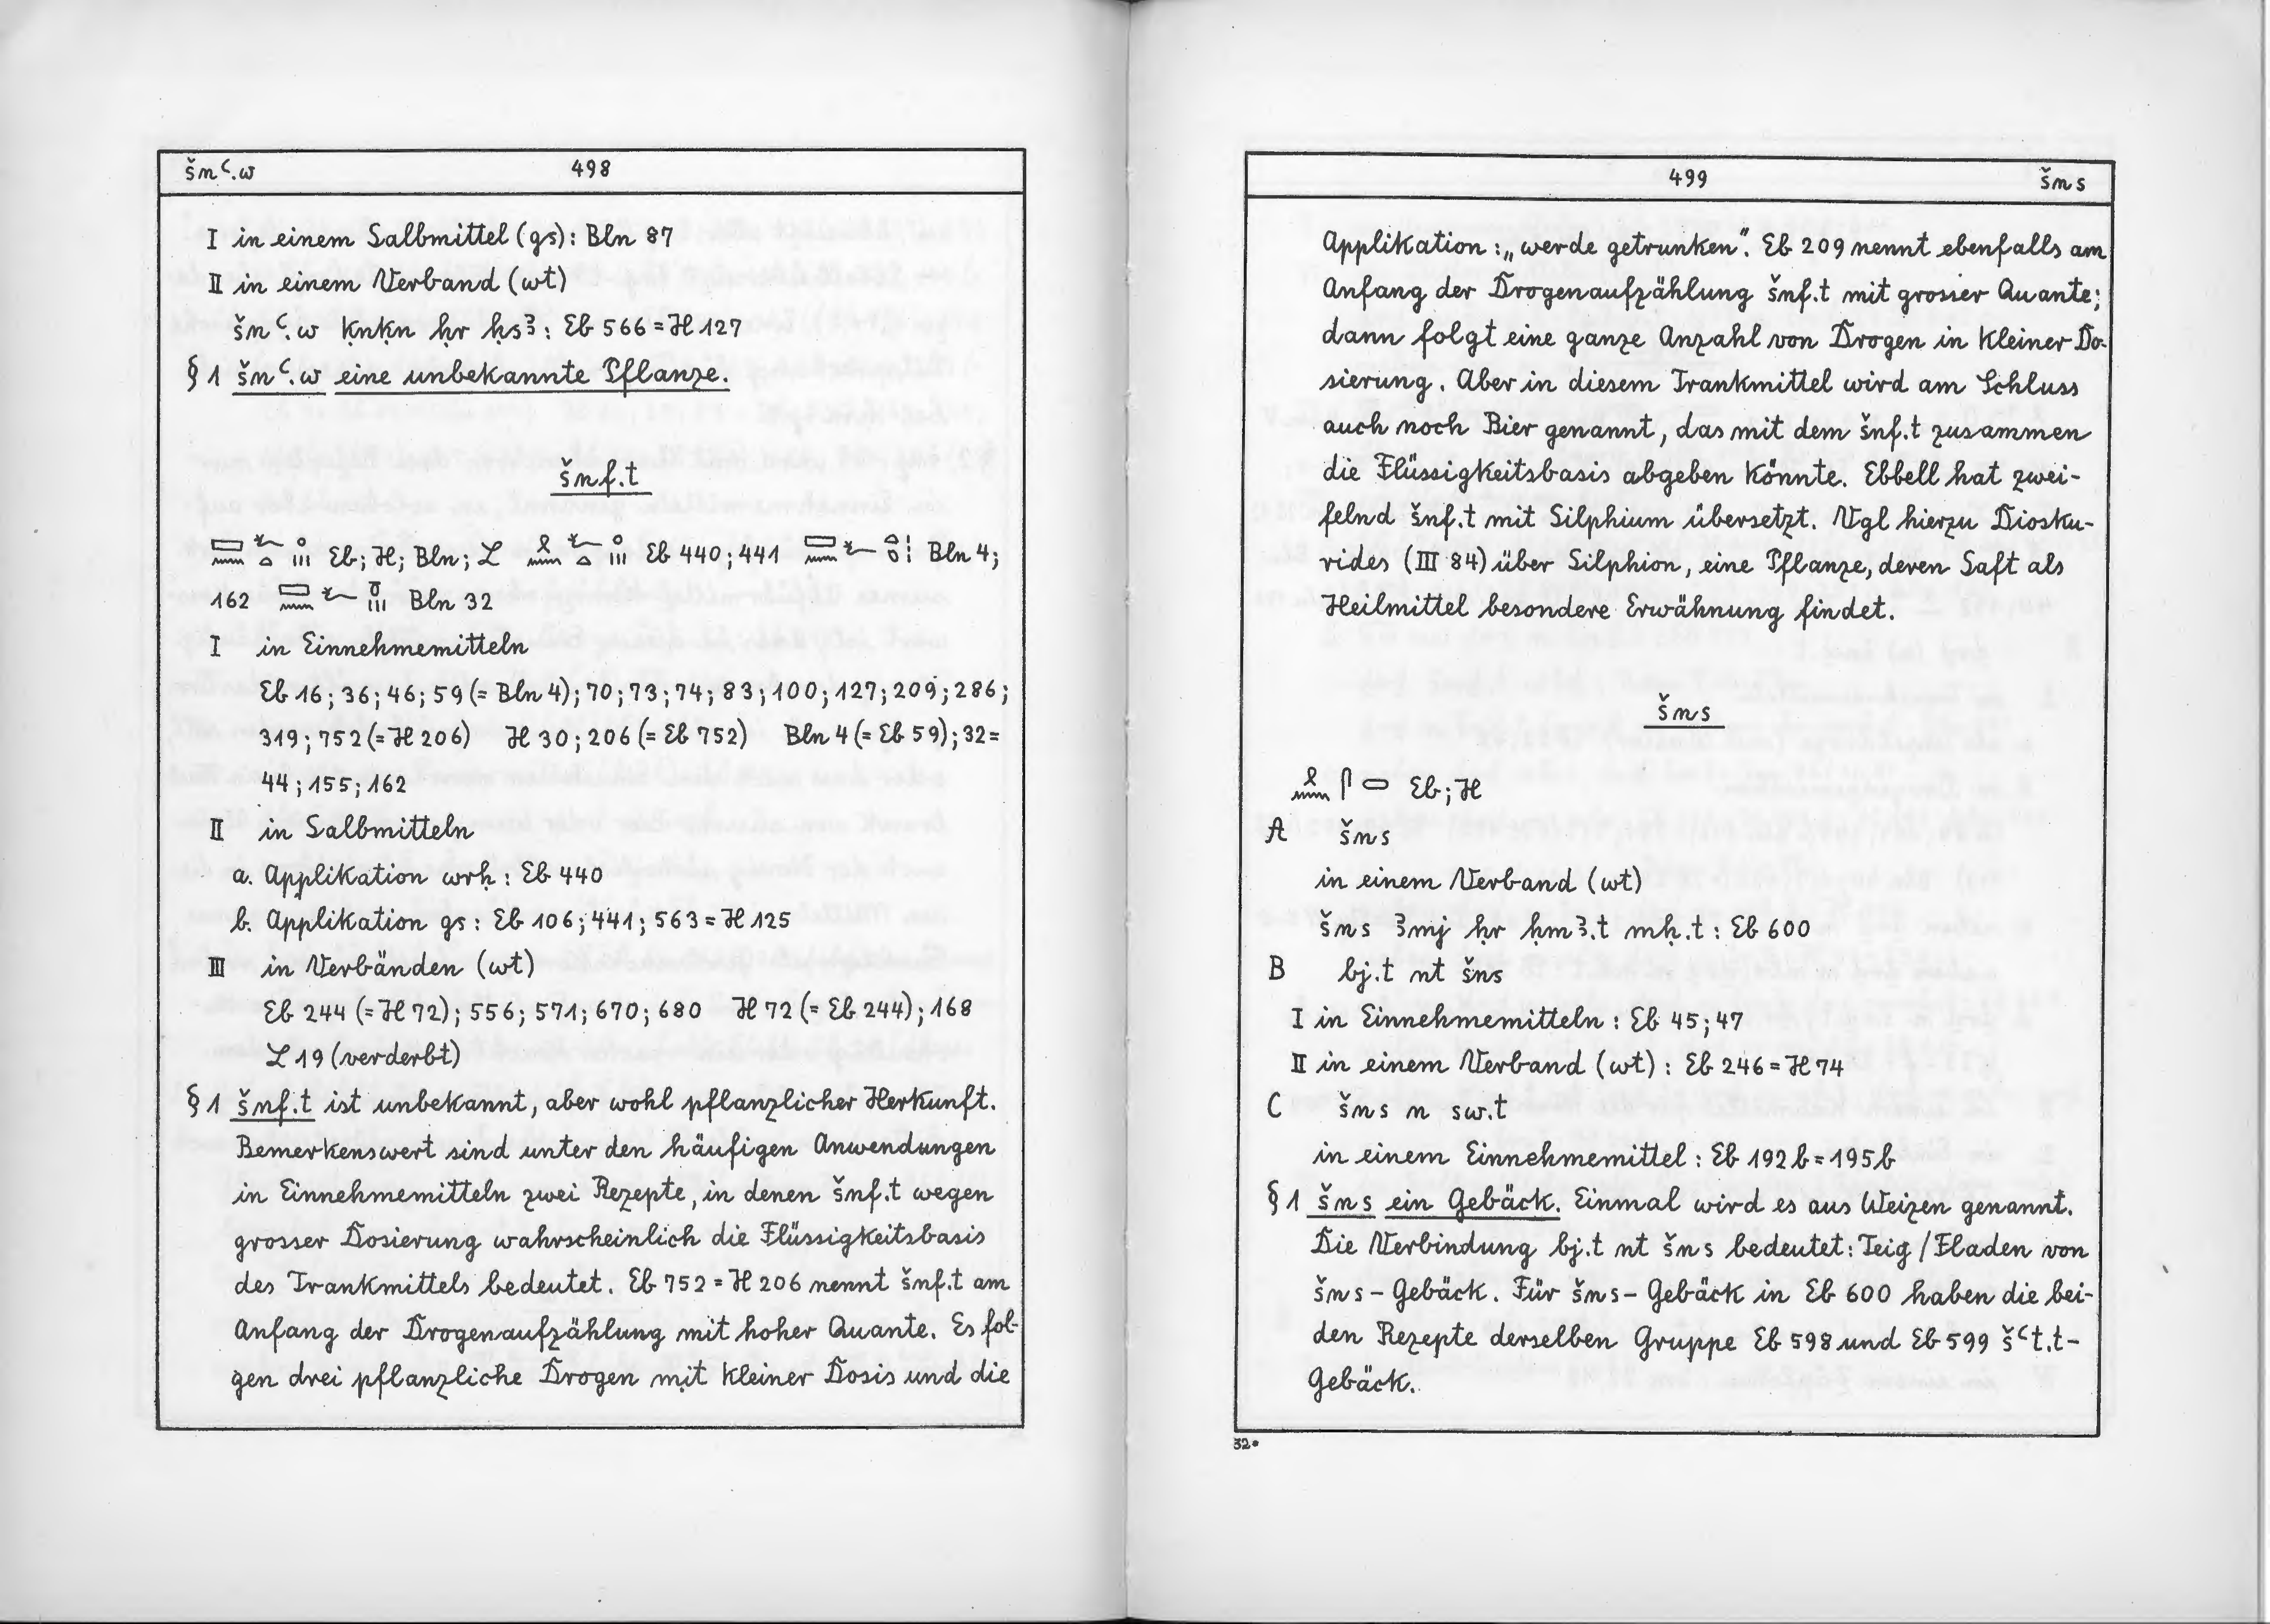 šnꜥ.w 498
I in einem Salbmittel (gs): Bln 87
II in einem Verband (wt)
šnꜥ.w ḳnḳn ḥr ḥsꜣ: Eb 566 = H 127
§ 1 šnꜥ.w eine unbekannte Pflanze.
šnf.t
Eb; H; Bln; L Eb 440; 441 Bln 4;
162 Bln 32
I in Einnehmemitteln
Eb 16; 36; 46; 59 (= Bln 4); 70; 73; 74; 83; 100; 127; 209; 286;
319; 752 (= H 206) H 30; 206 (= Eb 752) Bln 4 (= Eb 59); 32 =
44; 155; 162
II in Salbmitteln
a. Applikation wrḥ: Eb 440
b. Applikation gs: Eb 106; 441; 563 = H 125
III in Verbänden (wt)
Eb 244 (= H 72); 556; 571; 670; 680 H 72 (= Eb 244); 168
L 19 (verderbt)
§ 1 šnf.t ist unbekannt, aber wohl pflanzlicher Herkunft.
Bemerkenswert sind unter den häufigen Anwendungen
in Einnehmemitteln zwei Rezepte, in denen šnf.t wegen
grosser Dosierung wahrscheinlich die Flüssigkeitsbasis
des Trankmittels bedeutet. Eb 752 = H 206 nennt šnf.t am
Anfang der Drogenaufzählung mit hoher Quante. Es fol-
gen drei pflanzliche Drogen mit kleiner Dosis und die
499 šns
Applikation: „werde getrunken". Eb 209 nennt ebenfalls am
Anfang der Drogenaufzählung šnf.t mit grosser Quante;
dann folgt eine ganze Anzahl von Drogen in kleiner Do-
sierung. Aber in diesem Trankmittel wird am Schluss
auch noch Bier genannt, das mit dem šnf.t zusammen
die Flüssigkeitsbasis abgeben könnte. Ebbell hat zwei-
felnd šnf.t mit Silphium übersetzt. Vgl hierzu Diosku-
rides (III 84) über Silphion, eine Pflanze, deren Saft als
Heilmittel besondere Erwähnung findet.
šns
Eb; H
A šns
in einem Verband (wt)
šns ꜣmj ḥr ḥmꜣ.t mḥ.t: Eb 600
B bj.t nt šns
I in Einnehmemitteln: Eb 45; 47
II in einem Verband (wt): Eb 246 = H 74
C šns n sw.t
in einem Einnehmemittel: Eb 192b = 195b
§ 1 šns ein Gebäck. Einmal wird es aus Weizen genannt.
Die Verbindung bj.t nt šns bedeutet: Teig / Fladen von
šns-Gebäck. Für šns-Gebäck in Eb 600 haben die bei-
den Rezepte derselben Gruppe Eb 598 und Eb 599 šꜥt.t-
Gebäck.
32*